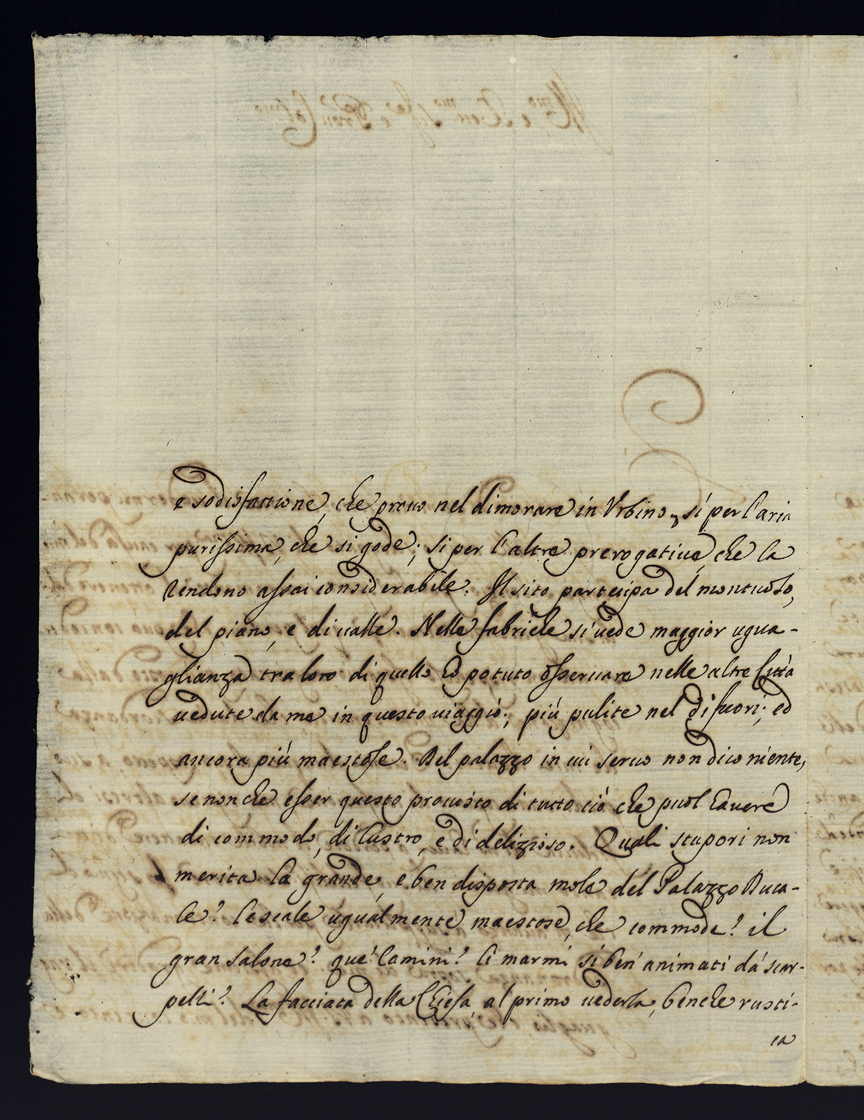 e sodisfattione, che provo nel dimorare in Vrbino, sì per l'aria
purissima, che si gode; si per l'altre prerogative, che la
rendono assai considerabile. Il sito partecipa del montuoso,
del piano, e di valle. Nelle fabriche si vede maggior ugua-
glianza tra loro di quello hò potuto osservare nelle altre Città
vedute da me in questo viaggio; più pulite nel di fuori; ed
ancora più maestose. Del palazzo in cui servo non dico niente,
se non che esser questo proveduto di tutto ciò che puol havere
di commodo, di lustro, e di delizioso. Quali stupori non
merita la grande, e ben disposta mole del Palazzo Duca-
le? le scale ugualmente maestose, che commode? il
gran salone? que' Camini? li marmi si ben' animati da' scar-
pelli? La facciata della Chiesa, al primo vederla, benche rusti-
ca